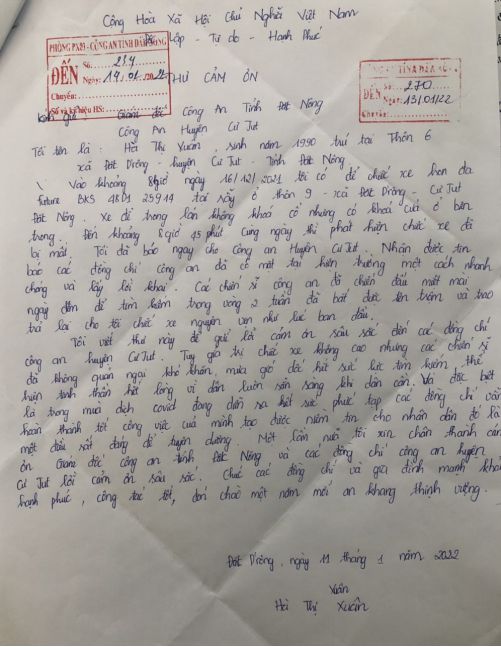 Cộng Hoà Xã Hội Chủ Nghĩa Việt Nam
Độc Lập - Tự do - Hạnh Phúc
PHÒNG PX01 - CÔNG AN TỈNH ĐẮK NÔNG
ĐẾN
Số: 284
Ngày: 14/01/2022
Chuyển:
Số và ký hiệu HS:
CÔNG AN TỈNH ĐẮK NÔNG
ĐẾN
Số: 270
Ngày: 13/01/22
Chuyển:
THƯ CẢM ƠN
Kính gửi: Giám đốc Công An Tỉnh Đắt Nông
Công An Huyện Cư Jut
Tôi tên là: Hà Thị Xuân, sinh năm 1990 trú tại Thôn 6
xã Đắt D'rông - huyện Cư Jut - Tỉnh Đắt Nông.
Vào khoảng 8 giờ ngày 16/12/2021 tôi có để chiếc xe hon da
future BKS 48D1 25914 tại rẫy ở thôn 9 - xã Đắt D'rông - Cư Jut
Đắt Nông. Xe để trong lán không khoá cổ nhưng có khoá cửa ở bên
trong. Đến khoảng 8 giờ 45 phút cùng ngày thì phát hiện chiếc xe đã
bị mất. Tôi đã báo ngay cho công an Huyện Cư Jut. Nhận được tin
báo các đồng chí công an đã có mặt tại hiện trường một cách nhanh
chóng và lấy lời khai. Các chiến sĩ công an đã chiến đấu miệt mài
ngày đêm để tìm kiếm trong vòng 2 tuần đã bắt được tên trộm và trao
trả lại cho tôi chiếc xe nguyên vẹn như lúc ban đầu.
Tôi viết thư này để gửi lời cảm ơn sâu sắc đến các đồng chí
công an huyện Cư Jut. Tuy giá trị chiếc xe không cao nhưng các chiến sĩ
đã không quản ngại khó khăn, mưa gió dốc hết sức lực tìm kiếm thể
hiện tinh thần hết lòng vì dân luôn sẵn sàng khi dân cần. Và đặc biệt
là trong mùa dịch covid đang diễn ra hết sức phức tạp các đồng chí vẫn
hoàn thành tốt công việc của mình tạo được niềm tin cho nhân dân đó là
một điều rất đáng để tuyên dương. Một lần nữa tôi xin chân thành cảm
ơn Giám đốc công an tỉnh Đắt Nông và các đồng chí công an huyện
Cư Jut lời cảm ơn sâu sắc. Chúc các đồng chí và gia đình mạnh khoẻ
hạnh phúc, công tác tốt, đón chào một năm mới an khang thịnh vượng.
Đắt D'rông, ngày 11 tháng 1 năm 2022
Xuân
Hà Thị Xuân